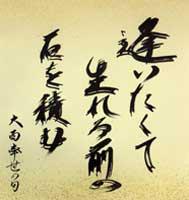 逢いたくて
生れる前の
石を積む
大西泰世の句